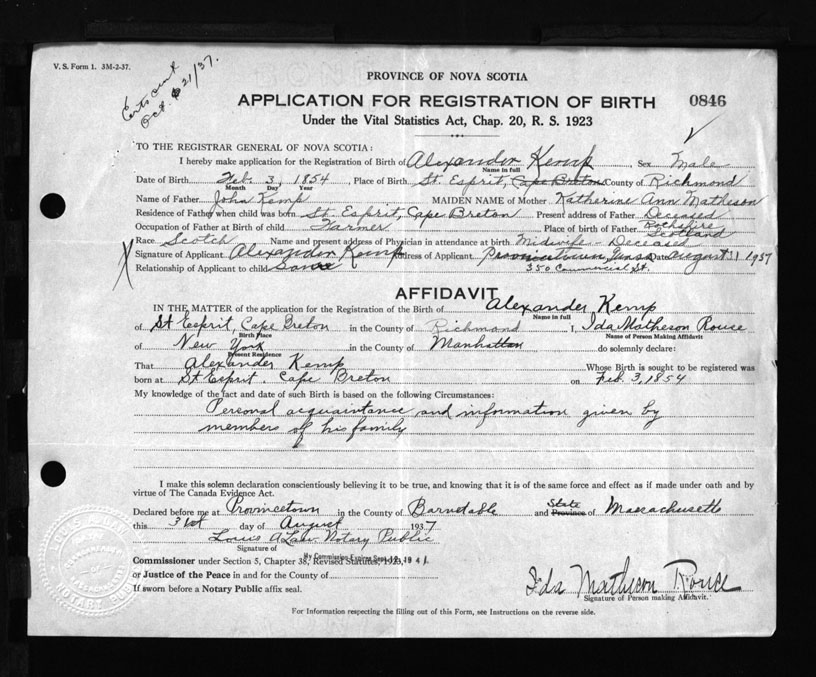 V. S. Form 1. 3M-2-37.
Oct. 21/37.
PROVINCE OF NOVA SCOTIA
APPLICATION FOR REGISTRATION OF BIRTH 0846
Under the Vital Statistics Act, Chap. 20, R. S. 1923
TO THE REGISTRAR GENERAL OF NOVA SCOTIA:
I hereby make application for the Registration of Birth of Alexander Kemp, Sex Male
Name in full
Date of Birth Feb. 3, 1854, Place of Birth St. Esprit, Cape Breton County of Richmond
Month Day Year
Name of Father John Kemp MAIDEN NAME of Mother Katherine Ann Matheson
Residence of Father when child was born St. Esprit, Cape Breton Present address of Father Deceased
Occupation of Father at Birth of child Farmer Place of birth of Father Scotland
Race Scotch Name and present address of Physician in attendance at birth Midwife - Deceased
Signature of Applicant Alexander Kemp Address of Applicant Provincetown, Date August 31 1937
Relationship of Applicant to child 350 Commercial St.
AFFIDAVIT
IN THE MATTER of the application for the Registration of the Birth of Alexander Kemp
Name in full
of St Esprit, Cape Breton in the County of Richmond I, Ida Matheson Rouse
Birth Place Name of Person Making Affidavit
of New York in the County of Manhattan do solemnly declare:
Present Residence
That Alexander Kemp Whose Birth is sought to be registered was
born at St Esprit. Cape Breton on Feb. 3, 1854
My knowledge of the fact and date of such Birth is based on the following Circumstances:
Personal acquaintance and information given by
members of his family
I make this solemn declaration conscientiously believing it to be true, and knowing that it is of the same force and effect as if made under oath and by
virtue of The Canada Evidence Act.
Declared before me at Provincetown in the County of Barnstable and State Province of Massachusetts
this 31st day of August 1937
Louis A Law Notary Public
Signature of
My Commission Expires Sept. 1941
Commissioner under Section 5, Chapter 38, Revised Statutes, 1923,
or Justice of the Peace in and for the County of
If sworn before a Notary Public affix seal.
Ida Matheson Rouse
Signature of Person making Affidavit.
For Information respecting the filling out of this Form, see Instructions on the reverse side.